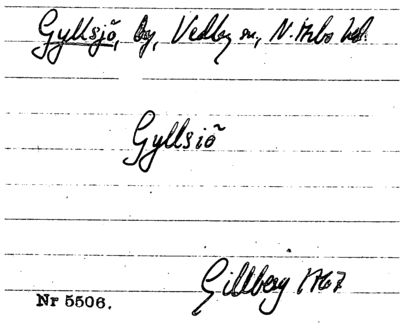 Gyllsjö, by, Vedby sn., N. Åsbo hd.
Gyllsiö
Gillberg 1767
Nr 5506.